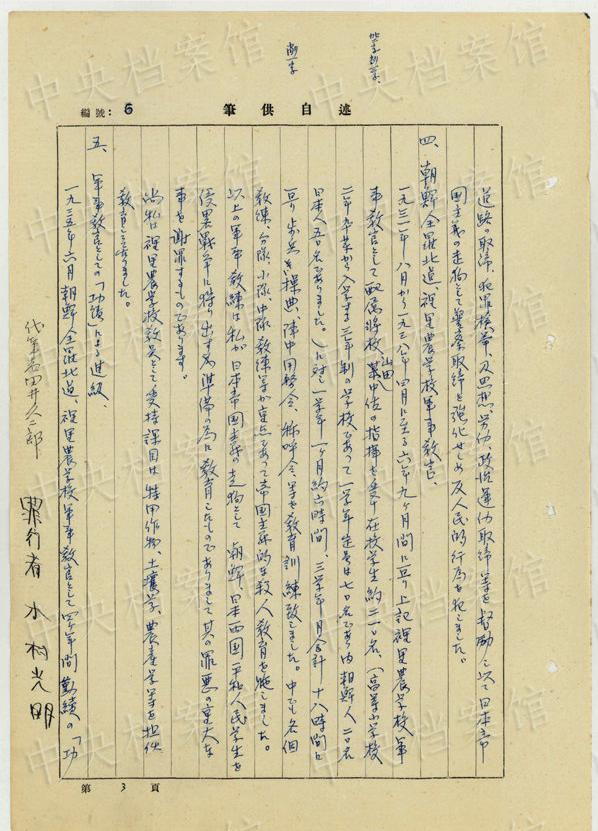 編號:6
筆供自述
道路の取締、犯罪捜査、及思想、労働、政治運動取締等を督励し以て日本帝
国主義の走狗として警察取締を強化せしめ反人民的行為を犯しました。
四、朝鮮全羅北道、裡里農学校軍事教官、
一九三一年八月から一九三八年四月に至る六年九ヶ月間に亘り上記裡里農学校軍
事教官として配属将校
山田
中佐の指揮を受け在校学生約二一〇名、(高等小学校
二年卒業から入学する三年制の学校であって一学年定員は七〇名であり内朝鮮人二〇名
日本人五〇名でありました。)に対し一学年一ヶ月約六時間、三学年一ヶ月合計十八時間に
亘り歩兵操典、陣中
令等を教育訓練致しました。中でも各個
教練、分隊、小隊、中隊教練等が重点であって帝国主義的な殺人教育を施しました。
以上の軍事教練は私が日本帝国主義の走狗として朝鮮、日本両国平和人民学生を
侵略戦争に狩り出す為準備の為に教育したものでありまして其の罪悪の重大な
事を謝罪するものであります。
尚私は裡里農学校教員として受持課目は特用作物、土壌学、農産学等を担任
教育しました。
五、軍事教官としての「功績」による進級、
一九三五年六月朝鮮全羅北道、裡里農学校軍事教官として四ヶ年間勤績の「功
代筆者田井久二郎
罪行者 水村光明
第3頁
中央档案馆